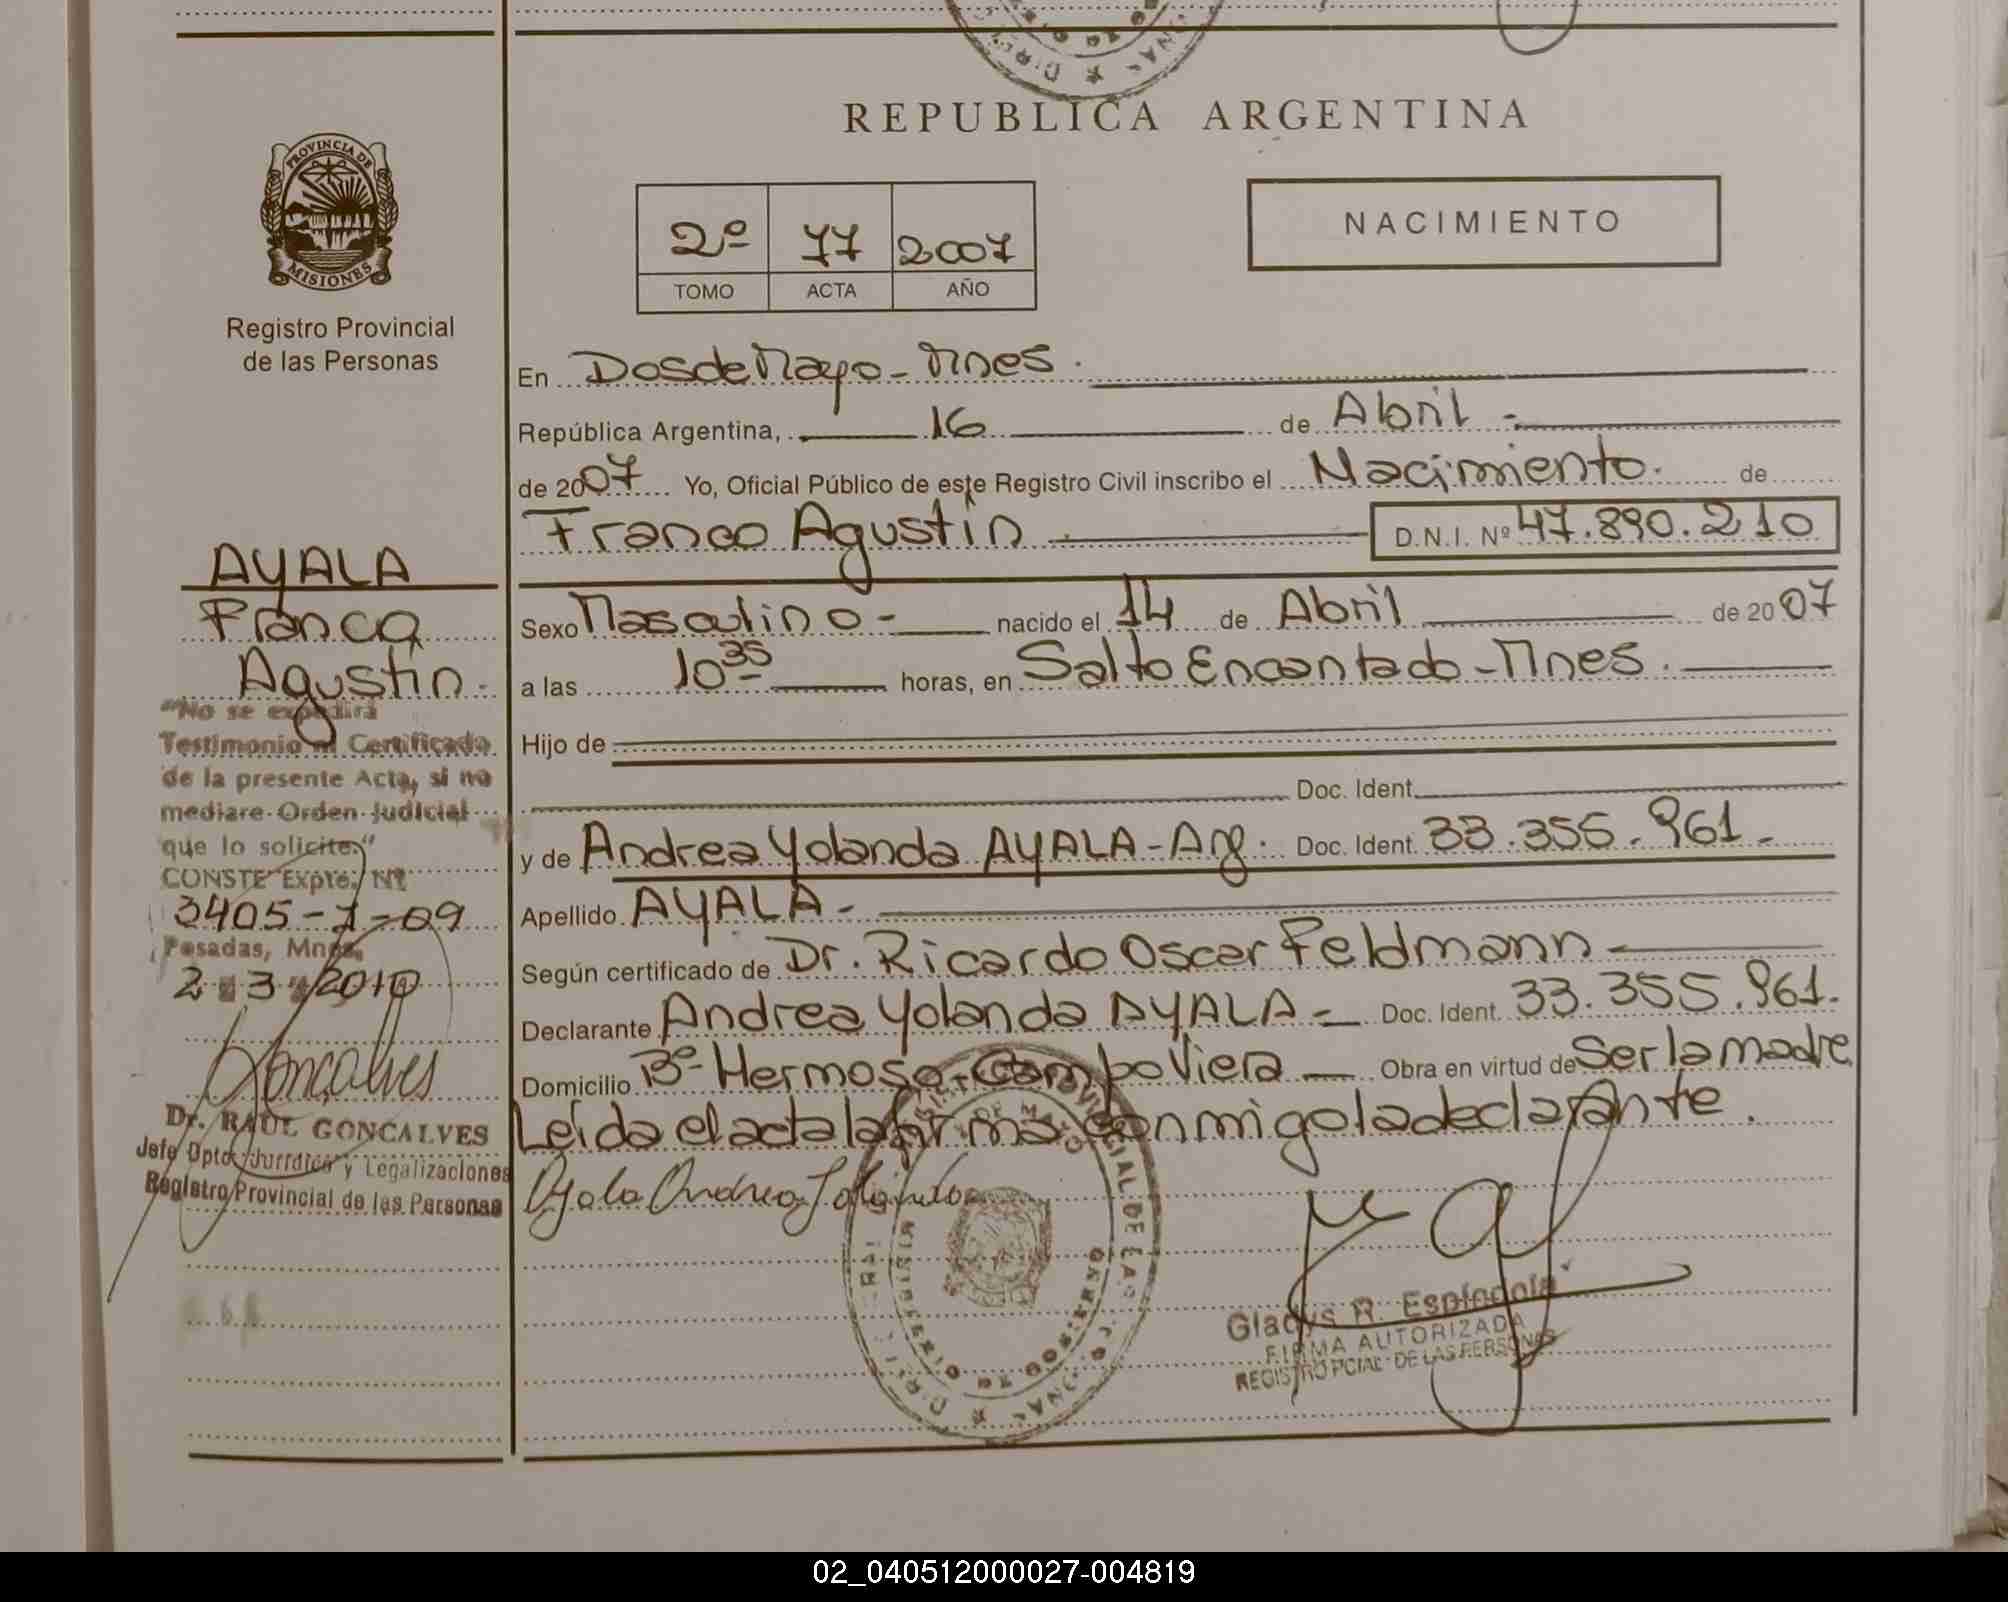 REPUBLICA ARGENTINA
PROVINCIA DE
MISIONES
Registro Provincial
de las Personas
2º 77 2007
TOMO ACTA AÑO
NACIMIENTO
En Dos de Mayo - Mnes.
República Argentina, 16 de Abril -
de 2007 Yo, Oficial Público de este Registro Civil inscribo el Nacimiento. de
Franco Agustín D.N.I. Nº 47.890.210
Sexo Masculino - nacido el 14 de Abril de 2007
a las 10 35 horas, en Salto Encantado - Mnes.
Hijo de
Doc. Ident.
y de Andrea Yolanda AYALA - Arg. Doc. Ident. 33.355.961.-
Apellido AYALA -
Según certificado de Dr. Ricardo Oscar Feldmann
Declarante Andrea Yolanda AYALA - Doc. Ident. 33.355.961.
Domicilio Bº Hermoso - Campo Viera Obra en virtud de Ser la madre
Leída el acta la firma conmigo la declarante.
Ayala Andrea Yolanda
Gladys R. Espindola
FIRMA AUTORIZADA
REGISTRO PCIAL DE LAS PERSONAS
AYALA
Franco
Agustín.
"No se expedirá
Testimonio ni Certificado
de la presente Acta, si no
mediare Orden Judicial
que lo solicite."
CONSTE Expte. Nº
3405-7-09
Posadas, Mnes,
2 3 2010
Goncalves
Dr. RAUL GONCALVES
Jefe Dpto. Jurídica y Legalizaciones
Registro Provincial de las Personas
02_040512000027-004819